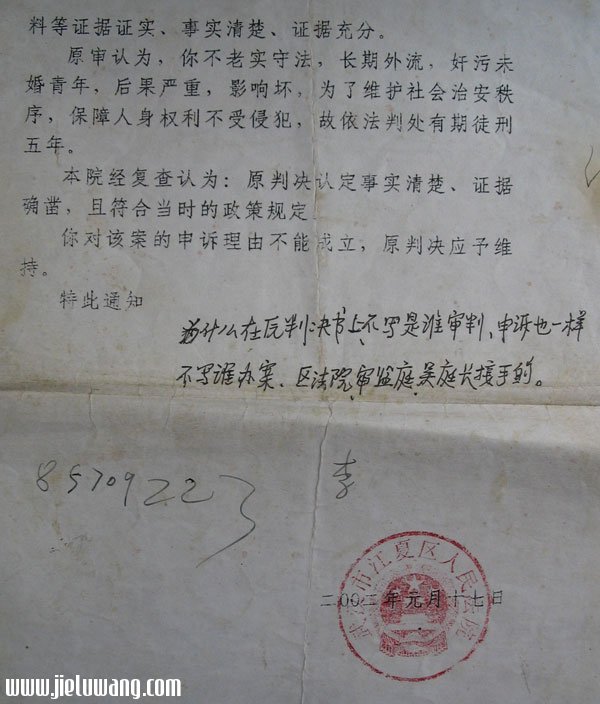 料等证据证实、事实清楚、证据充分。
原审认为，你不老实守法，长期外流，奸污未
婚青年，后果严重，影响坏，为了维护社会治安秩
序，保障人身权利不受侵犯，故依法判处有期徒刑
五年。
本院经复查认为：原判决认定事实清楚、证据
确凿，且符合当时的政策规定
你对该案的申诉理由不能成立，原判决应予维
持。
特此通知
为什么在原判决书上不写是谁审判，申诉也一样
不写谁办案、区法院审监庭吴庭长接手的。
8570922
李
武汉市江夏区人民法院
二00二年元月十七日
www.jieluwang.com